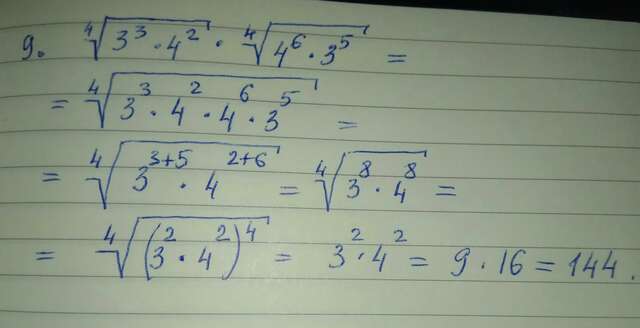 9. ∜(3³ · 4²) · ∜(4⁶ · 3⁵) =
= ∜(3³ · 4² · 4⁶ · 3⁵) =
= ∜(3³⁺⁵ · 4²⁺⁶) = ∜(3⁸ · 4⁸) =
= ∜((3² · 4²)⁴) = 3² · 4² = 9 · 16 = 144.